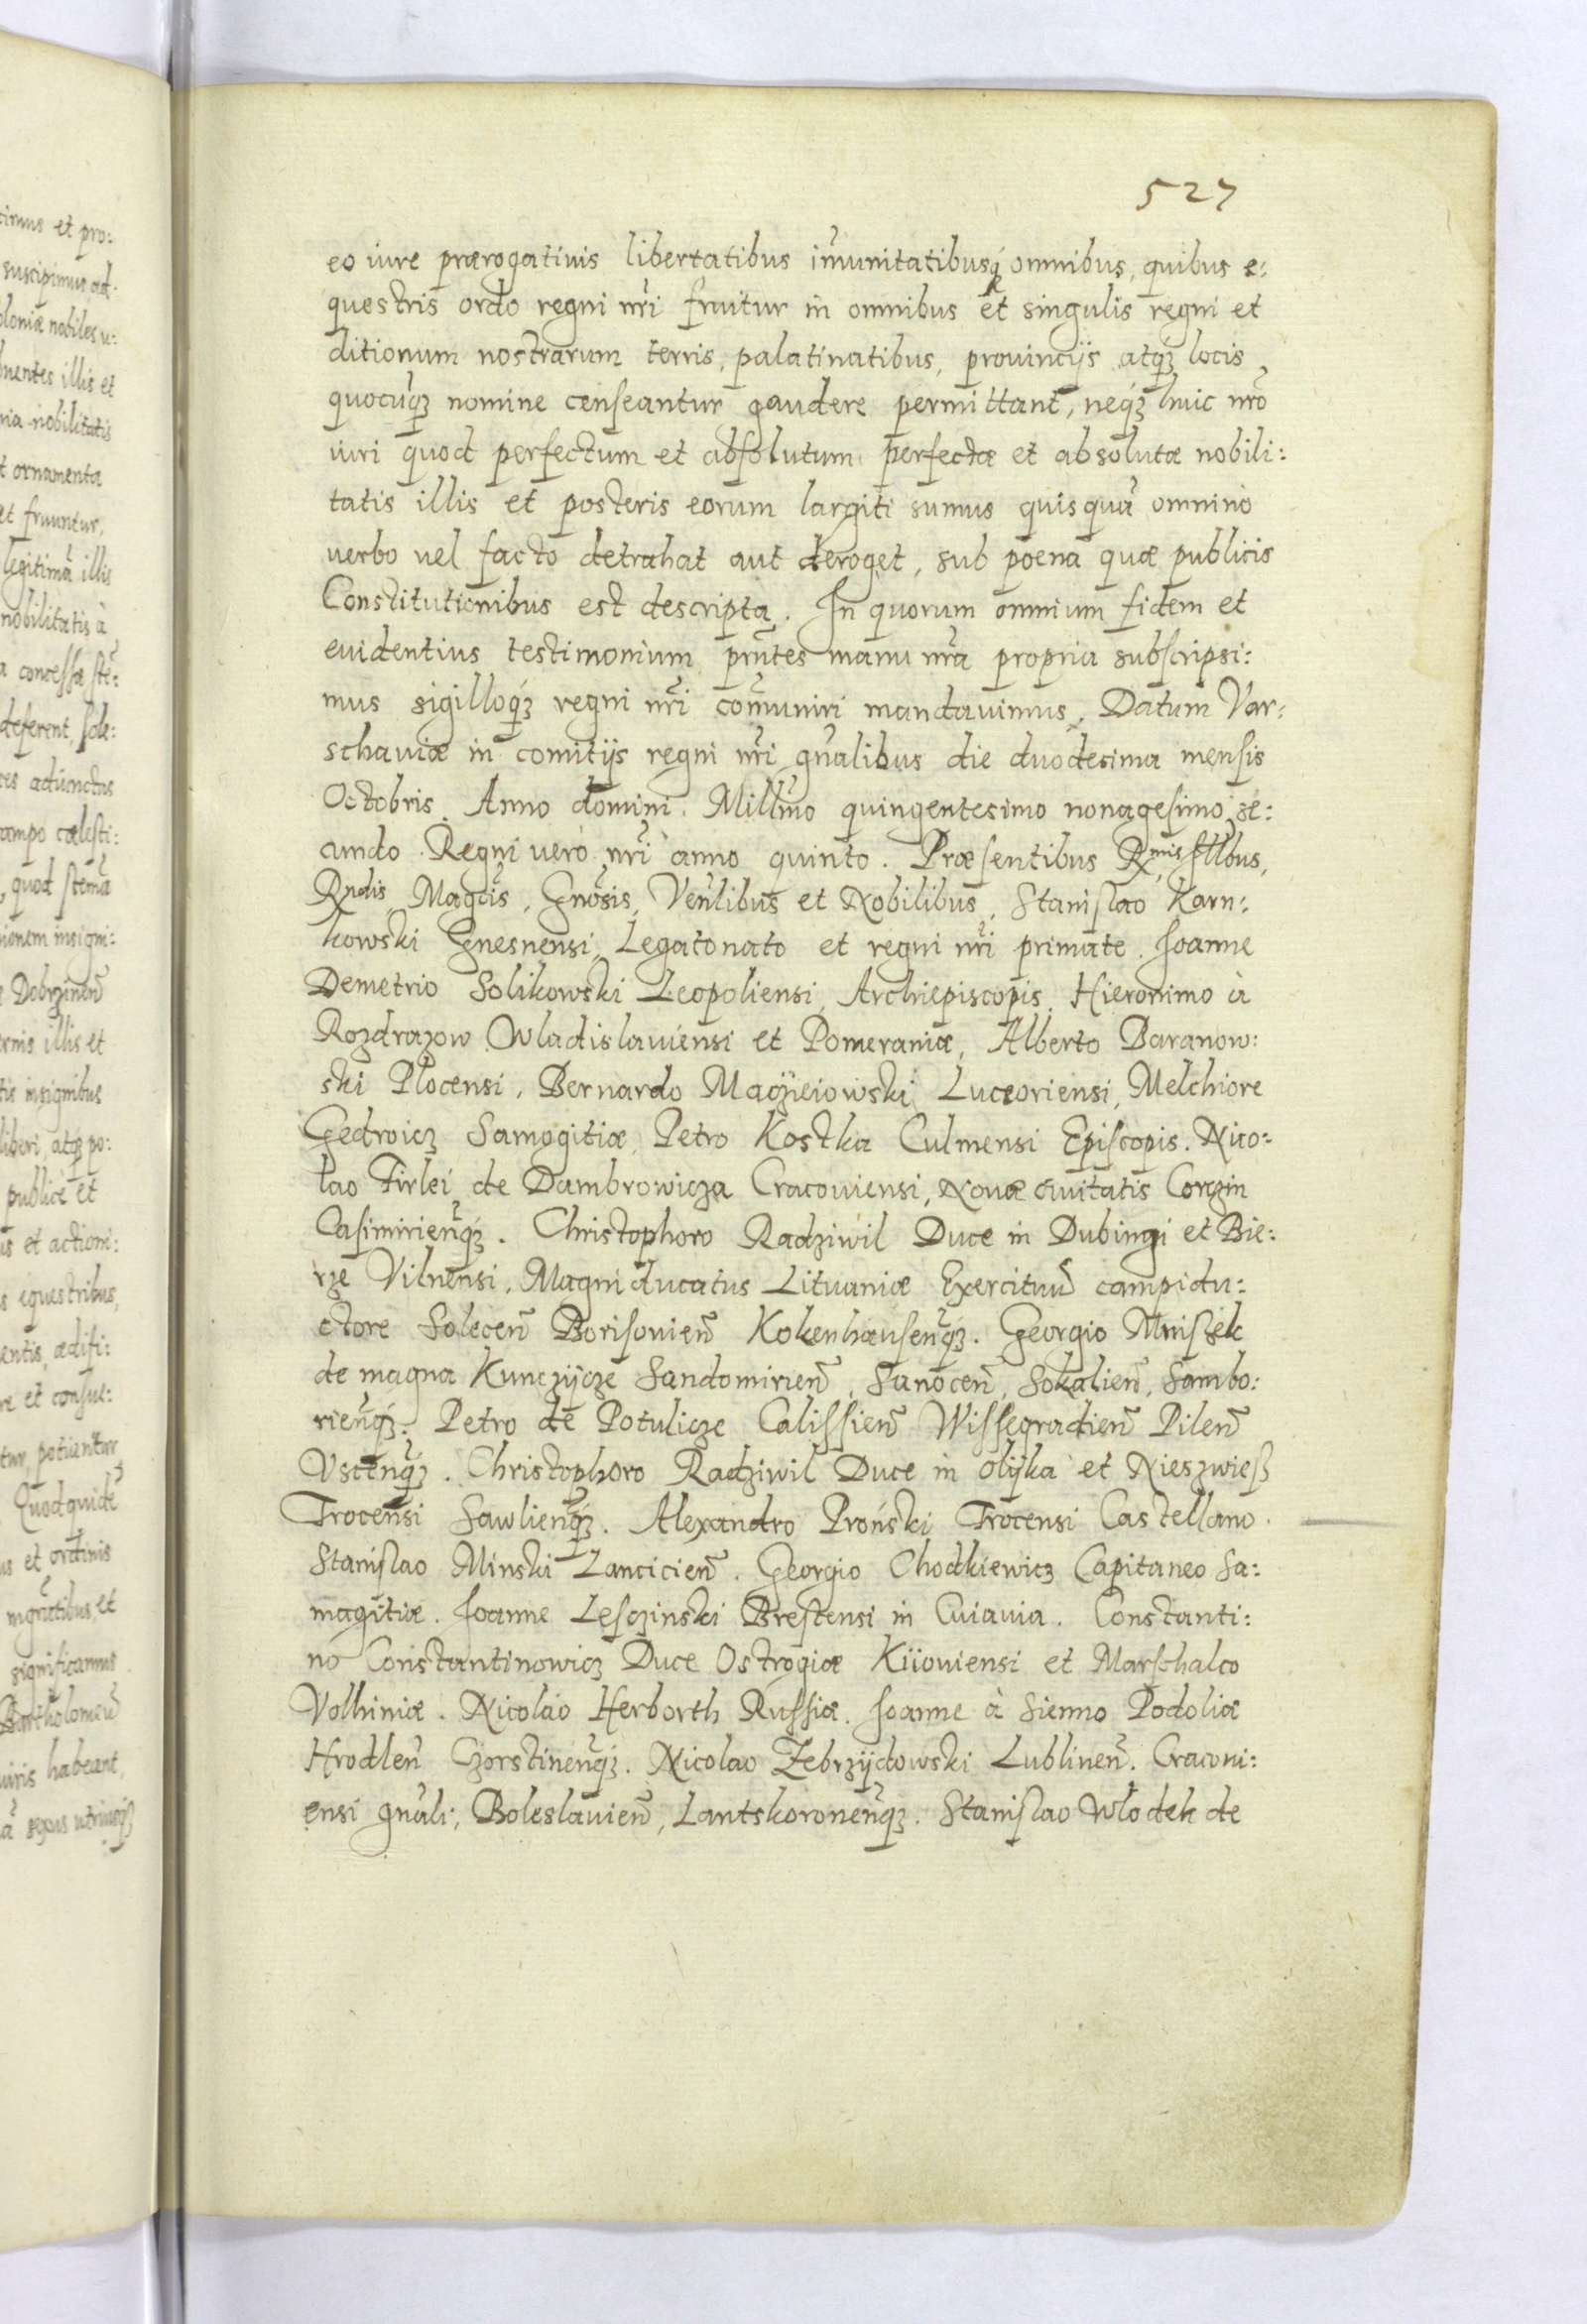 527
eo iure prærogatiuis libertatibus im̃unitatibusq́ omnibus, quibus e:
questris ordo regni nr̃i fruitur in omnibus et singulis regni et
ditionum nostrarum terris, palatinatibus, prouincijs atq́ꝫ locis
quocũq́ꝫ nomine censeantur gaudere permittant, neq́ꝫ huic nr̃o
iuri quod perfectum et absolutum perfectæ et absolutæ nobili:
tatis illis et posteris eorum largiti sumus quisquã omninò
uerbo uel facto detrahat aut deroget, sub poena quæ publicis
Constitutionibus est descripta. In quorum omnium fidem et
euidentius testimonium pr̃ntes manu nr̃a propria subscripsi:
mus sigilloq́ꝫ regni nr̃i com̃uniri mandauimus. Datum Var:
schauiæ in comitijs regni nr̃i gñalibus die duodecima mensis
Octobris. Anno domini. Millm̃o quingentesimo nonagesimo se:
cundo. Regni uerò nr̃i anno quinto. Præsentibus Rmis Illbus,
Rndis Magcis, Gñosis, Veñlibus et Nobilibus, Stanislao Karn:
kowski Gnesnensi, Legatonato et regni nr̃i primate. Joanne
Demetrio Solikowski Leopoliensi, Archiepiscopis. Hieronimo à
Rozdrazow Wladislauiensi et Pomeraniæ, Alberto Baranow:
ski Plocensi, Bernardo Maczieiowski Luceoriensi, Melchiore
Gedroicz Samogitiæ, Petro Kostka Culmensi Episcopis. Nico:
lao Firlei de Dambrowicza Cracouiensi, Nouæ ciuitatis Corczin
Casimirien̄q́ꝫ. Christophoro Radziwil Duce in Dubingi et Bie:
rze Vilnensi, Magni ducatus Lituaniæ Exercituũ campidu:
ctore Solecen̄ Borisouien̄ Kokenhausen̄q́ꝫ. Georgio Mniszek
de magna Kunczijcze Sandomirien̄, Sanocen̄, Sokalien̄, Sambo:
rien̄q́ꝫ. Petro de Potulicze Calissien̄ Wissegradien̄ Pilen̄
Vscen̄q́ꝫ. Christophoro Radziwil Duce in Olijka et Nieszwiesz
Trocensi Sawlien̄q́ꝫ. Alexandro Proński Trocensi Castellano.
Stanislao Minski Lancicien̄. Georgio Chodkiewicz Capitaneo Sa:
magitiæ. Joanne Lesczinski Brestensi in Cuiauia. Constanti:
no Constantinowicz Duce Ostrogiæ Kiiouiensi et Marschalco
Volhiniæ. Nicolao Herborth Russiæ. Joanne à Sienno Podoliæ
Hrodlen̄ Czorstinen̄q́ꝫ. Nicolao Zebrzijdowski Lublinen̄. Cracoui:
ensi gñali, Boleslauien̄, Lantskoronen̄q́ꝫ. Stanislao Wlodek de